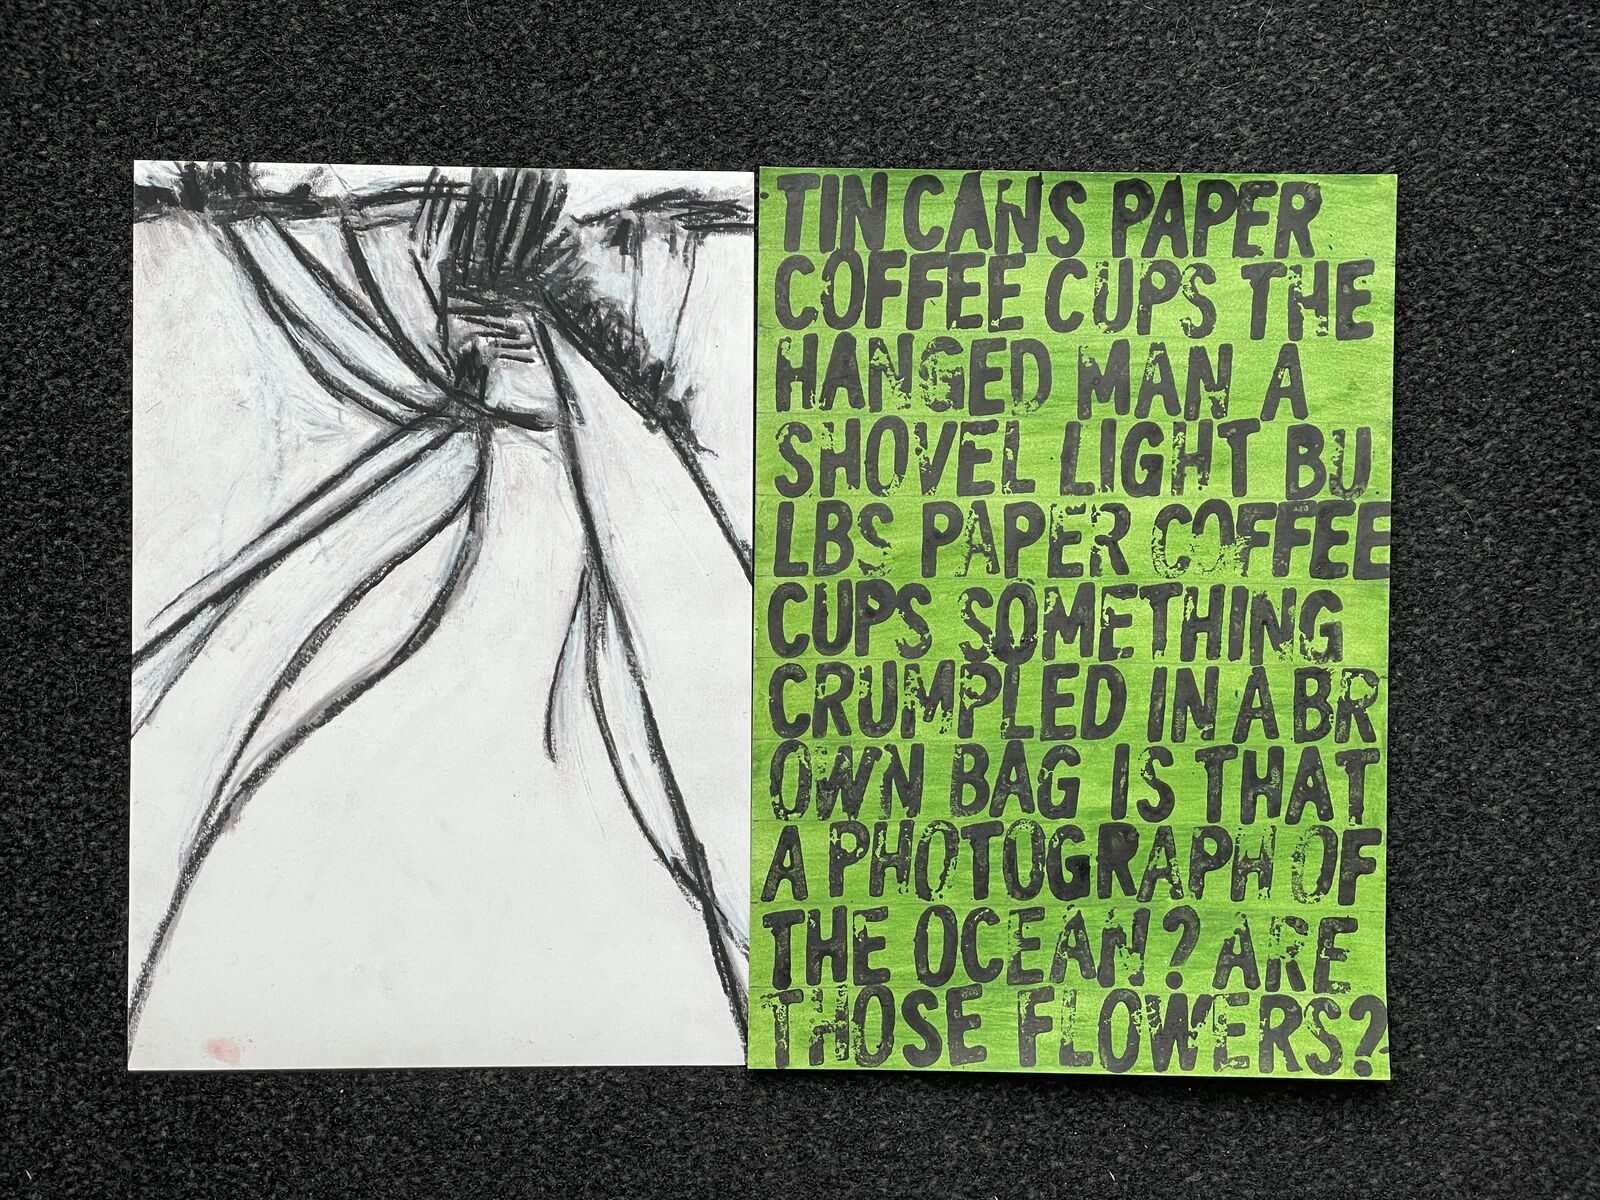 TIN CANS PAPER
COFFEE CUPS THE
HANGED MAN A
SHOVEL LIGHT BU
LBS PAPER COFFEE
CUPS SOMETHING
CRUMPLED IN A BR
OWN BAG IS THAT
A PHOTOGRAPH OF
THE OCEAN? ARE
THOSE FLOWERS?